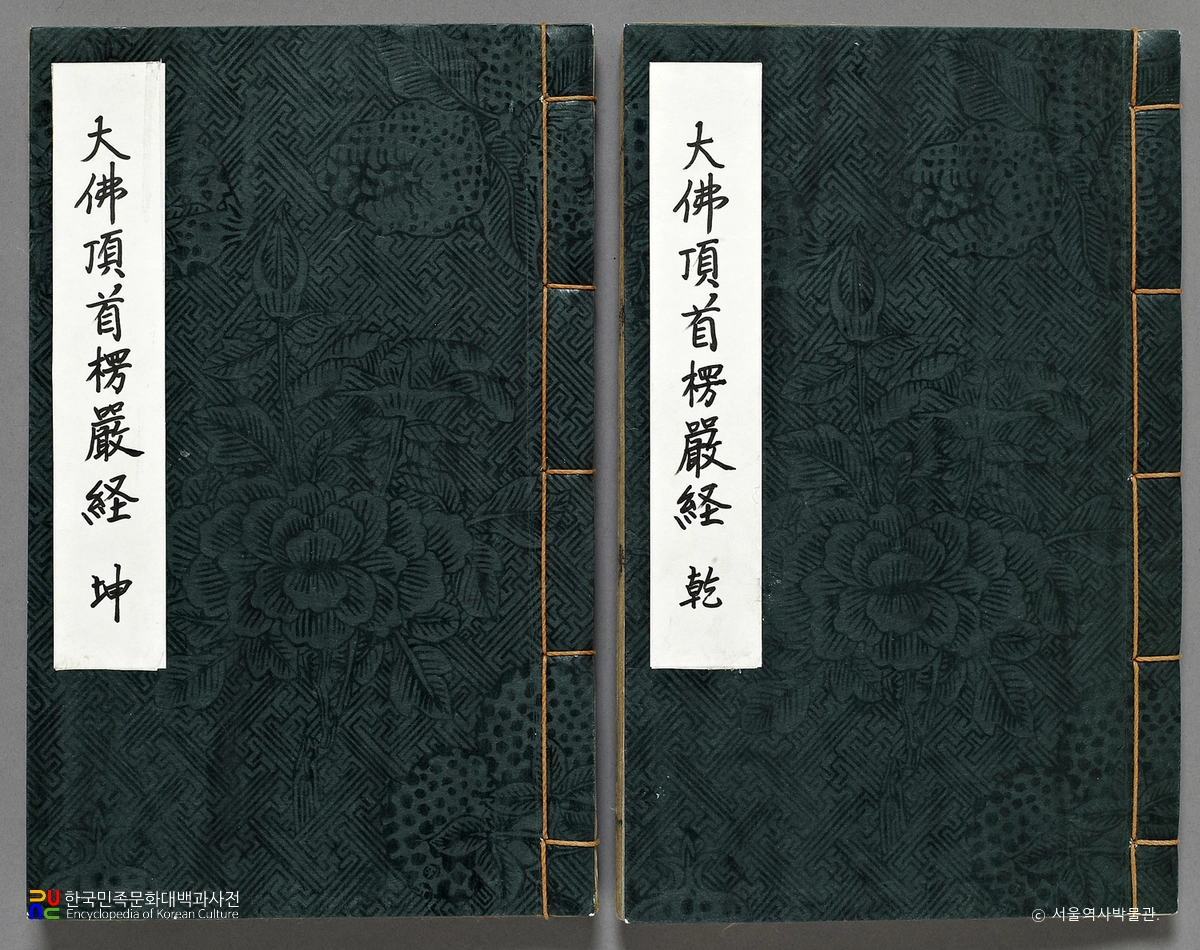 大佛頂首楞嚴経 乾
大佛頂首楞嚴経 坤
한국민족문화대백과사전
Encyclopedia of Korean Culture
ⓒ 서울역사박물관.